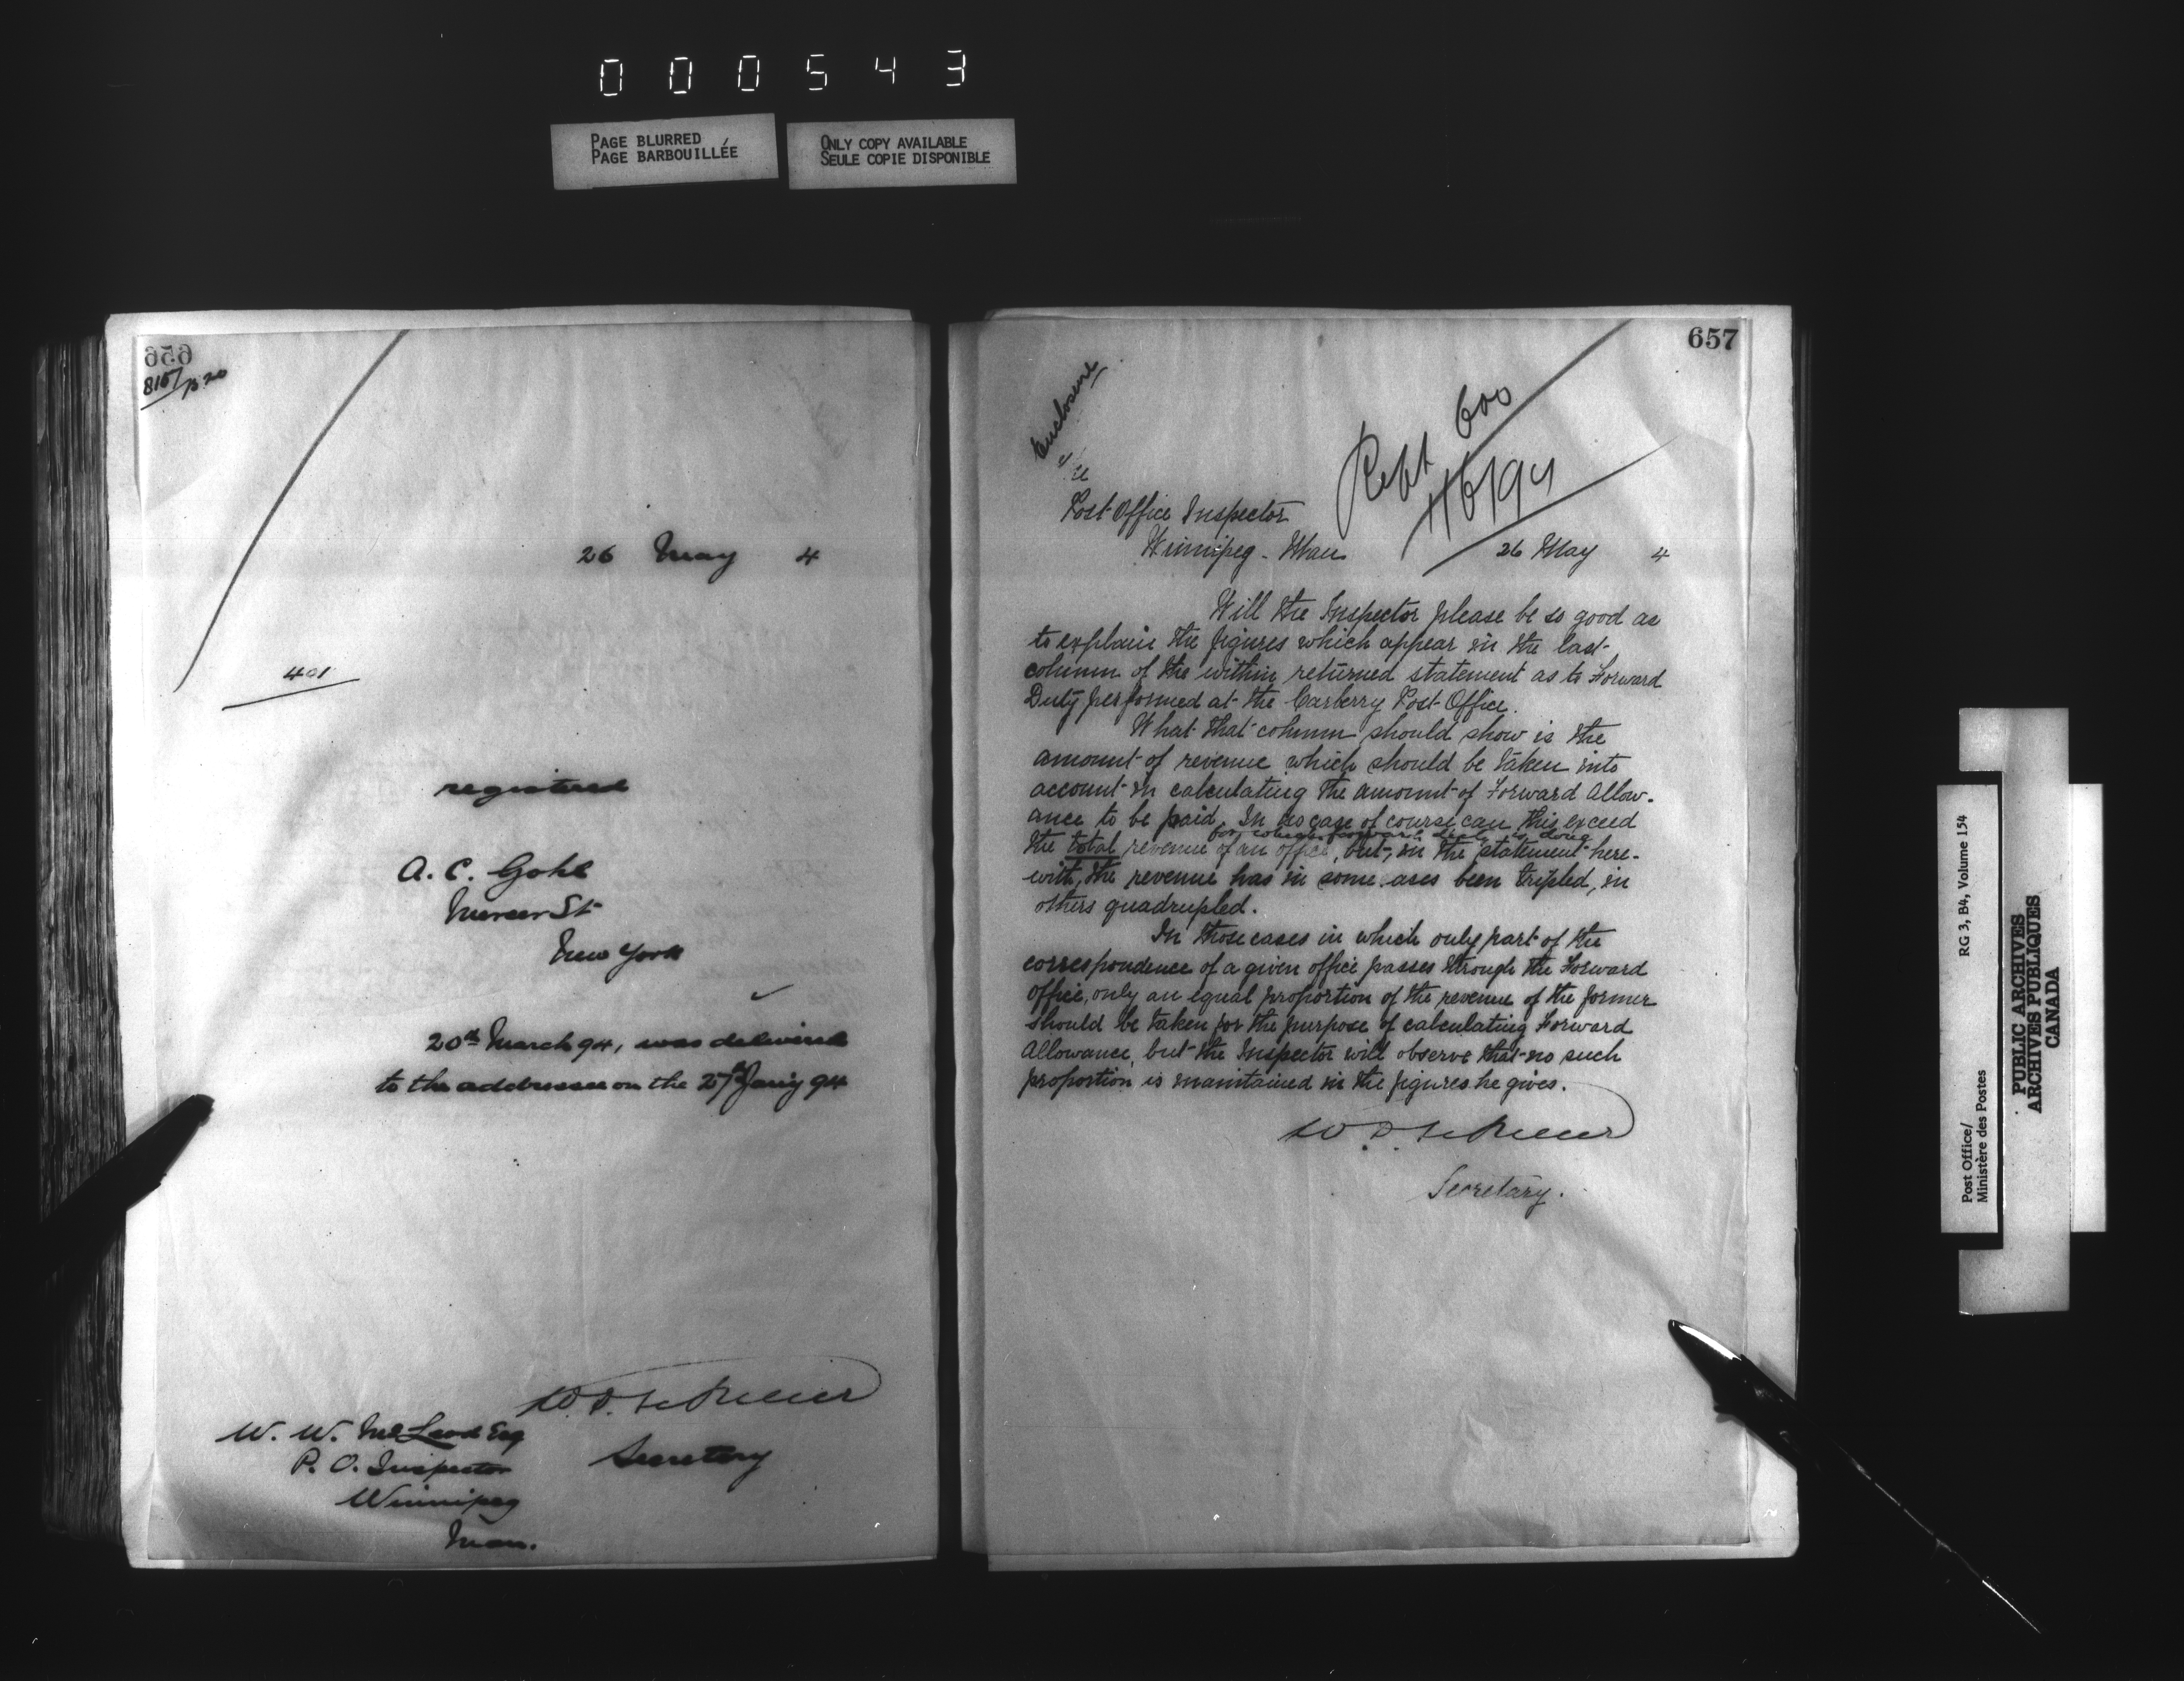 000543
PAGE BLURRED
PAGE BARBOUILLÉE
ONLY COPY AVAILABLE
SEULE COPIE DISPONIBLE
656
26 May 4
401
registered
A. C. Gohl
Mercer St
New York
20th March 94, was delivered
to the addressee on the 27th Jan'y 94
Secretary
W. W. McLeod Esq
P. O. Inspector
Winnipeg
Man.
657
Enclosure
600
Post Office Inspector
Winnipeg - Man
26 May 4
Will the Inspector please be so good as
to explain the figures which appear in the last
column of the within returned statement as to Forward
Duty performed at the Carberry Post Office.
What that column should show is the
amount of revenue which should be taken into
account in calculating the amount of Forward Allow-
ance to be paid. In no case of course can this exceed
for which forward duty is done
the total revenue of an office, but, in the statement here-
with, the revenue has in some ases been tripled, in
others quadrupled.
In those cases in which only part of the
correspondence of a given office passes through the Forward
Office, only an equal proportion of the revenue of the former
should be taken for the purpose of calculating Forward
Allowance, but the Inspector will observe that no such
proportion is maintained in the figures he gives.
Secretary.
Post Office/
Ministère des Postes
RG 3, B4, Volume 154
PUBLIC ARCHIVES
ARCHIVES PUBLIQUES
CANADA